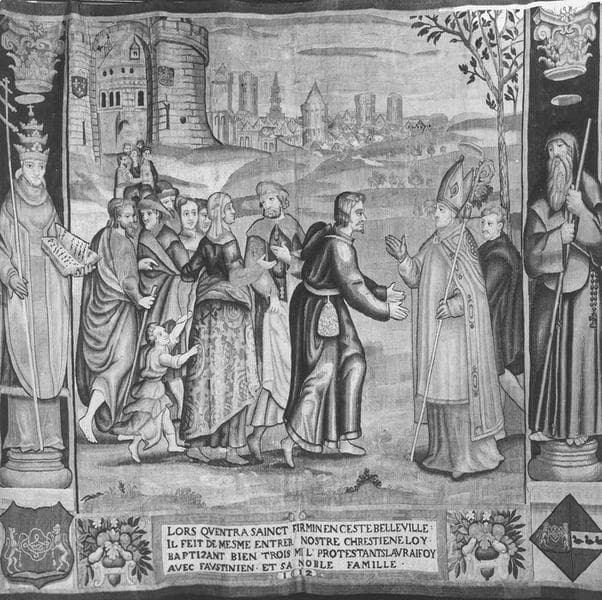 LORS QVENTRA SAINCT FIRMIN EN CESTE BELLEVILLE·
IL FEIT DE MESME ENTRER NOSTRE CHRESTIENE LOY·
BAPTISANT BIEN TROIS PROTESTANTS LAVRAIFOY
AVEC FAVSTINIEN· ET SA NOBLE FAMILLE·